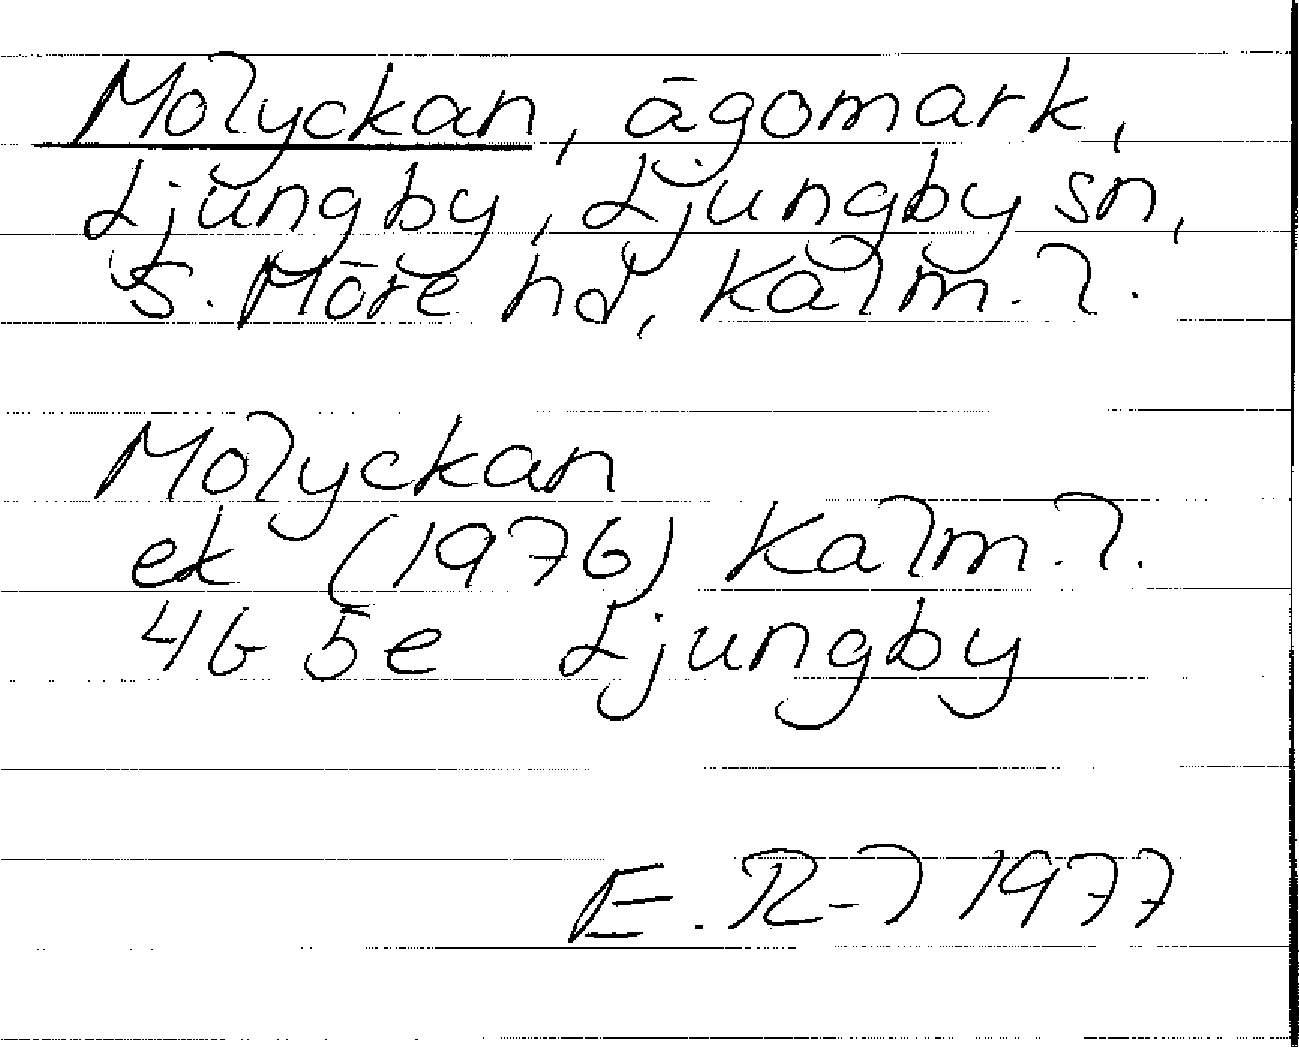 Molyckan, ägomark,
Ljungby, Ljungby sn,
S. Möre hd, Kalm. l.
Molyckan
ek (1976) Kalm. l.
4G 5e Ljungby
E. R-l 1977